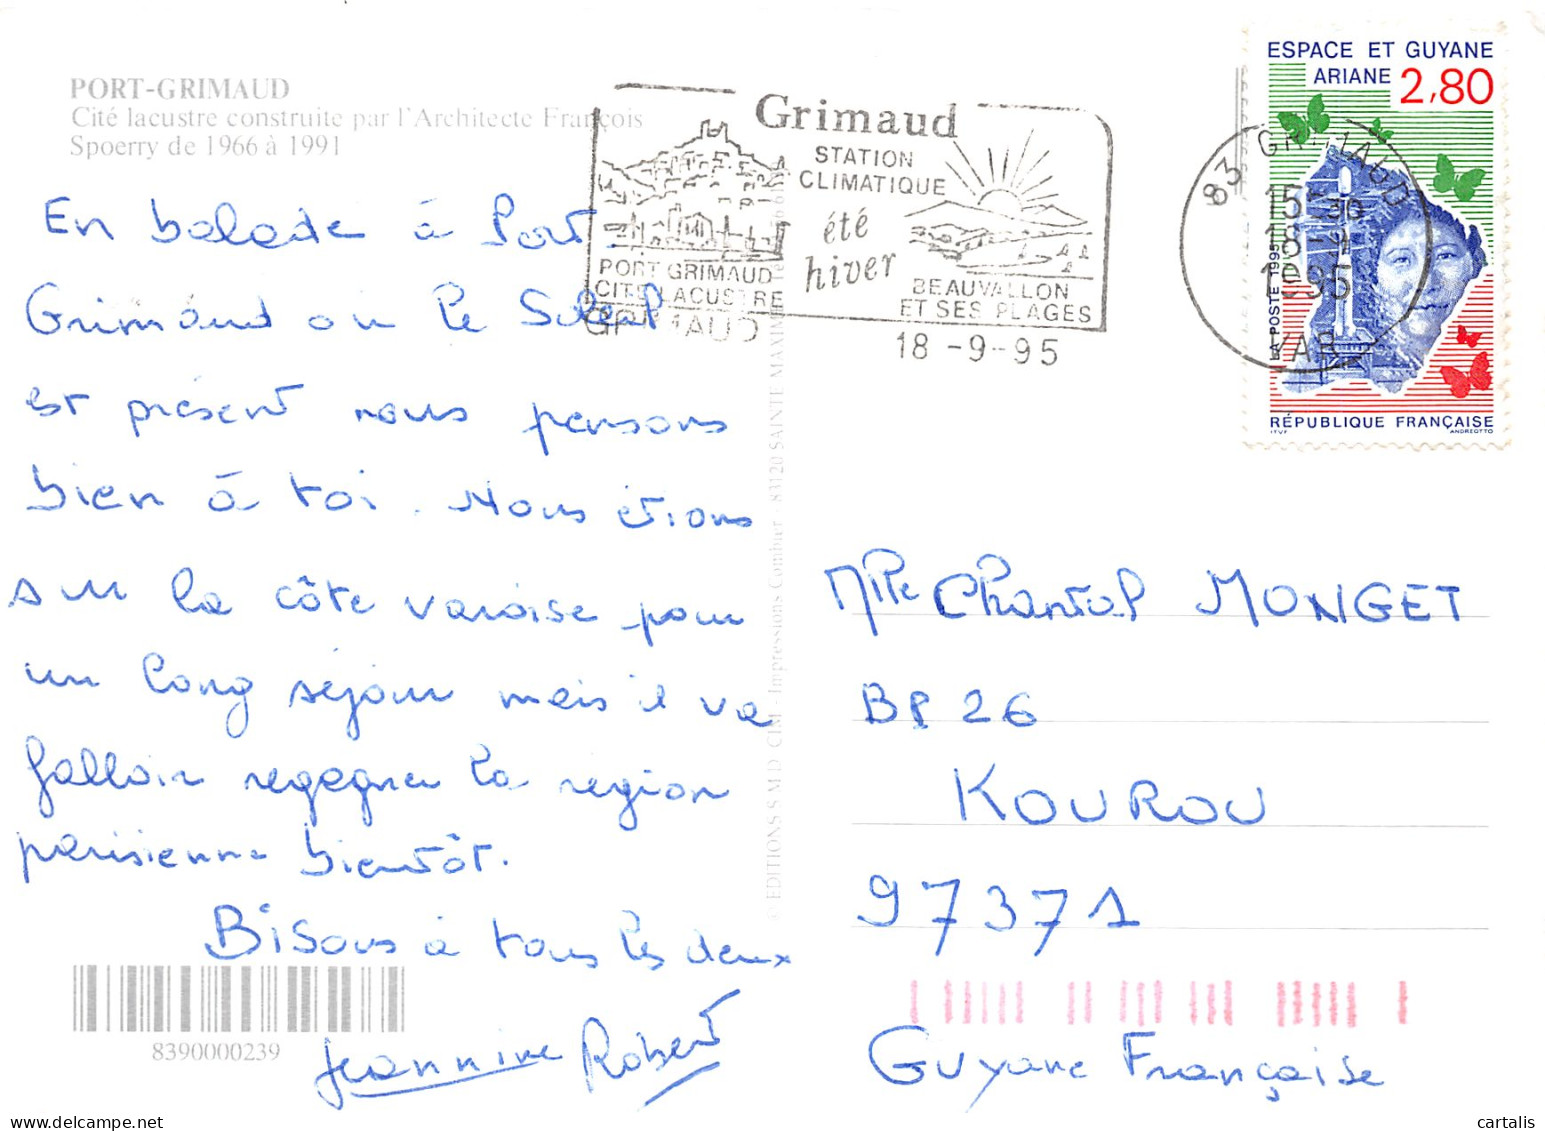 PORT-GRIMAUD
Cité lacustre construite par l'Architecte François
Spoerry de 1966 à 1991
En balade à Port
Grimaud où le Soleil
est présent nous pensons
bien à toi. Nous étions
sur la côte varoise pour
un long séjour mais il va
falloir regagner la région
parisienne bientôt.
Bisous à tous les deux
Jeannine Robert
8390000239
© EDITIONS S.M.D. CIM - Impressions Combier - 83120 SAINTE MAXIME
Grimaud
STATION
CLIMATIQUE
été
hiver
PORT GRIMAUD
CITE LACUSTRE
BEAUVALLON
ET SES PLAGES
GRIMAUD
18 -9-95
83 GRIMAUD
15H30
18-9
1995
VAR
ESPACE ET GUYANE
ARIANE 2,80
LA POSTE 1995
RÉPUBLIQUE FRANÇAISE
ITVF
ANDREOTTO
Mlle Chantal MONGET
BP 26
KOUROU
97371
Guyane Française
cartalis